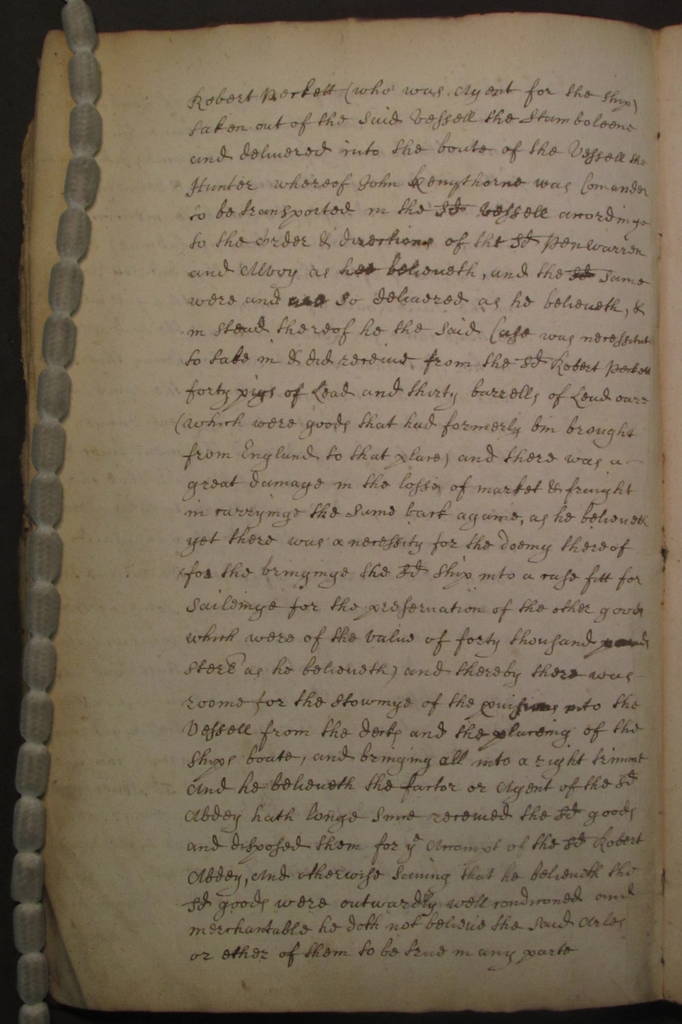 Robert Perkett (who was Agent for the Ship)
taken out of the said Vessell the Stamboleene
and delivered into the boate of the Vessell the
Hunter whereof John Kempthorne was Comander
to be transported in the sd vessell accordinge
to the order & directions of the sd Penwarren
and Alboy as hee beleiveth, and the sd same
were and so delivered as he beleiveth, &
in stead thereof he the said Case was necessitat
to take in & did receive from the sd Robert Perkett
forty pigs of Lead and thirty barrells of Lead oare
(which were goods that had formerly bin brought
from England to that place) and there was a
great damage in the losse of market & fraight
in carryinge the same back againe, as he beleiveth
yet there was a necessity for the doeing thereof
(for the bringinge the sd ship into a case fitt for
saileinge for the preservation of the other goods
which were of the value of forty thousand pounds
sterl as he beleiveth) and thereby there was
roome for the stowinge of the provisions into the
Vessell from the decks and the placeing of the
Ships boate, and bringing all into a right trimme
And he beleiveth the factor or Agent of the sd
Abdey hath longe since received the sd goods
and disposed them for ye Accompt of the sd Robert
Abdey, And otherwise saving that he beleiveth the
sd goods were outwardly well conditioned and
merchantable he doth not beleive the said Arles
or ether of them to be true in any parte